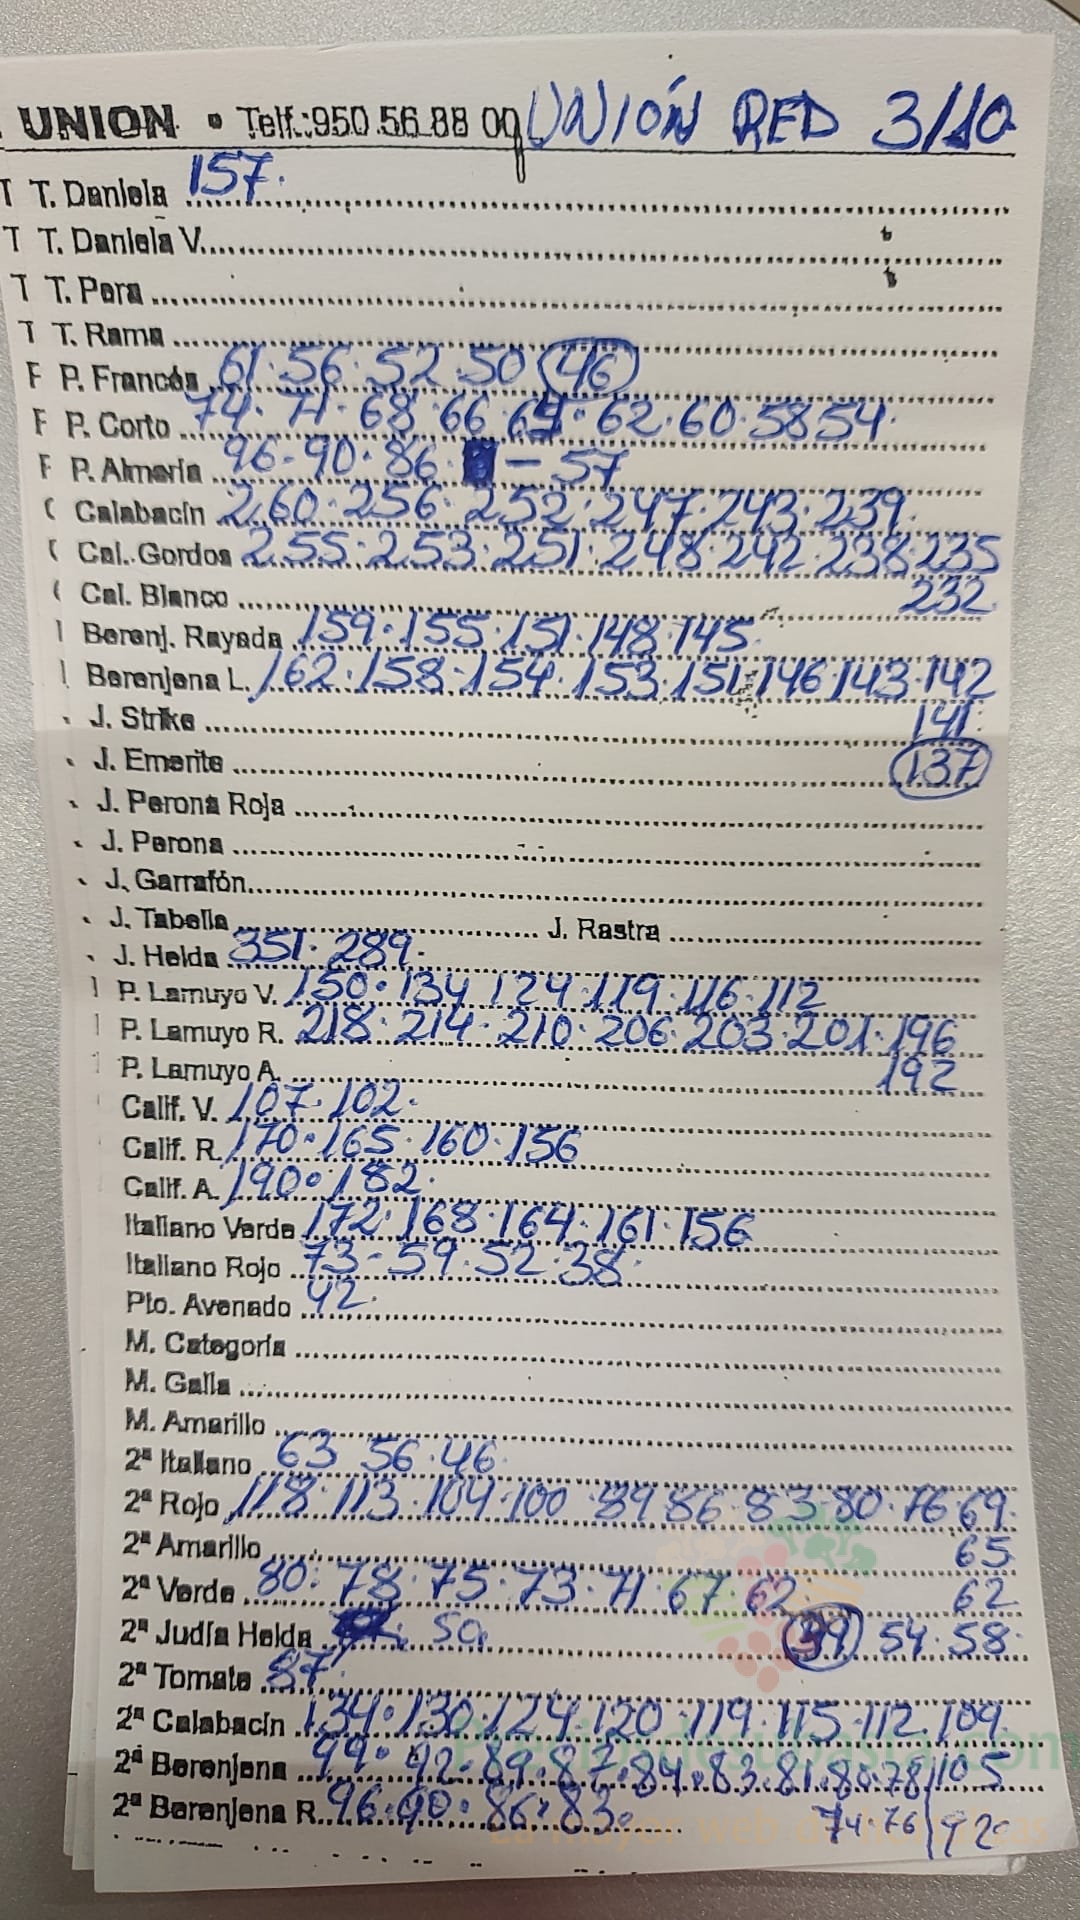 UNION • Telf.:950.56.88 00 UNIÓN RED 3/10
T T. Daniela 157.
T T. Daniela V.
T T. Pera
T T. Rama
F P. Francés 61. 56. 52. 50 46
F P. Corto 74. 71. 68. 66 64. 62. 60. 58 54.
F P. Almería 96. 90. 86. — 57
C Calabacín 260. 256. 252. 247. 243. 239.
C Cal. Gordos 255. 253. 251. 248. 242. 238. 235
Cal. Blanco 232
Berenj. Rayada 159. 155. 151. 148. 145
Berenjena L. 162. 158. 154. 153. 151. 146. 143. 142
J. Strike 141.
J. Emerite 137
J. Perona Roja
J. Perona
J. Garrafón
J. Tabella J. Rastra
J. Helda 351. 289.
P. Lamuyo V. 150. 134 124. 119. 116. 112
P. Lamuyo R. 218. 214. 210. 206. 203. 201. 196
P. Lamuyo A. 192
Calif. V. 107. 102.
Calif. R. 170. 165. 160. 156
Calif. A. 190. 182.
Italiano Verde 172. 168. 164. 161. 156
Italiano Rojo 73. 59. 52. 38.
Pto. Avenado 42.
M. Categoría
M. Galla
M. Amarillo
2ª Italiano 63 56. 46.
2ª Rojo 118. 113. 104. 100 89 86. 83. 80. 76 69.
2ª Amarillo 65
2ª Verde 80. 78. 75. 73. 71. 67. 62 62
2ª Judía Helda 50. 54. 58.
2ª Tomate 87
2ª Calabacín 134. 130. 124 120. 119. 115. 112. 109.
2ª Berenjena 99. 92. 89. 87. 84. 83. 81. 80. 78 | 105
2ª Berenjena R. 96. 90. 86. 83. 74. 76 |
Preciosdesubasta.com
La mayor web de subastas